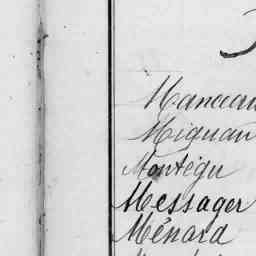 Manceau
Mignan
Montégu
Messager
Ménard